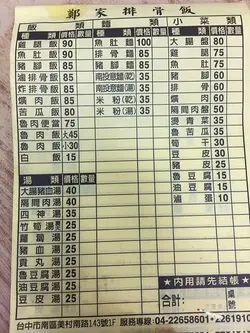 鄭家排骨飯
飯類 價格 數量
雞腿飯 90
魚肚飯 90
豬腳飯 85
滷排骨飯 85
炸排骨飯 85
爌肉飯 85
苦瓜飯 80
魯肉便當 75
魯肉飯 大45
魯肉飯 小30
白飯 15
湯類 價格 數量
大腸豬血湯 40
隔間肉湯 40
四神湯 35
竹筍湯 35
蘿蔔湯 25
豬血湯 25
貢丸湯 25
魯豆腐湯 25
油豆腐湯 25
豆皮湯 25
麵類 價格 數量
魚肚麵 100
排骨麵 95
豬腳麵 95
南投意麵(乾) 35
南投意麵(湯) 35
米粉(乾) 35
米粉(湯) 35
小菜類 價格 數量
大腸盤 80
魚肚 75
豬腳 60
排骨 60
爌肉 50
隔間肉 50
燙青菜 35
魯苦瓜 35
筍干 30
豆皮 25
豬血 25
魯豆腐 15
油豆腐 15
滷蛋 10
★內用請先結帳★
合計:
桌號
台中市南區美村南路143號1F 服務專線:04-22658601‧22610915